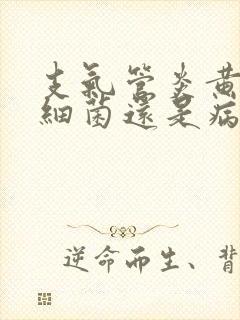 支氣管炎黃
細菌還是病
逆命而生、背